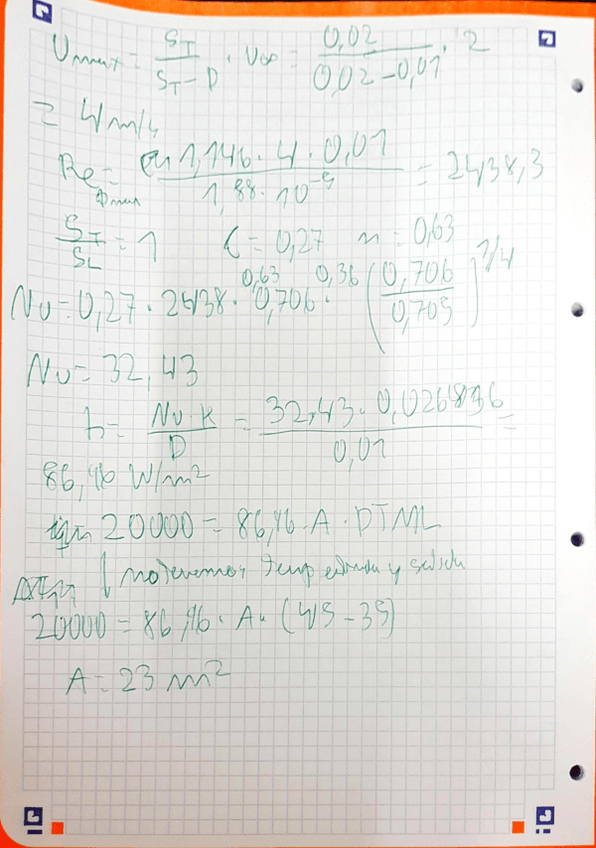 Umax = S_T / (S_T - D) · U∞ = 0,02 / (0,02 - 0,01) · 2
= 4 m/s
Re_Dmax = 1,146 · 4 · 0,01 / 1,88 · 10^-5 = 2438,3
S_T / S_L = 1 C = 0,27 m = 0,63
Nu = 0,27 · 2438^0,63 · 0,706^0,36 · (0,706 / 0,705)^1/4
Nu = 32,43
h = Nu · K / D = 32,43 · / 0,01 =
86,96 W/m²
20000 = 86,96 · A · DTML
no tenemos temp entrada y salida
20000 = 86,96 · A · (45 - 35)
A = 23 m²